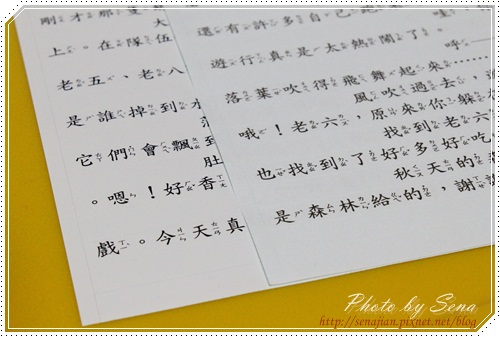 剛才那隻
大
上。在隊伍
老五、老八
是誰掉到水
它們會飄到
肚
。嗯！好香
戲。今天真
還有許多自己
哇
遊行真是太熱鬧了。
呼——
落葉吹得飛舞起來……
風吹過去，
哦！老六，原來你躲
找到老六
也找到了好多好吃
秋天的
是森林給的，謝
Photo by Sena
http://senajian.pixnet.net/blog